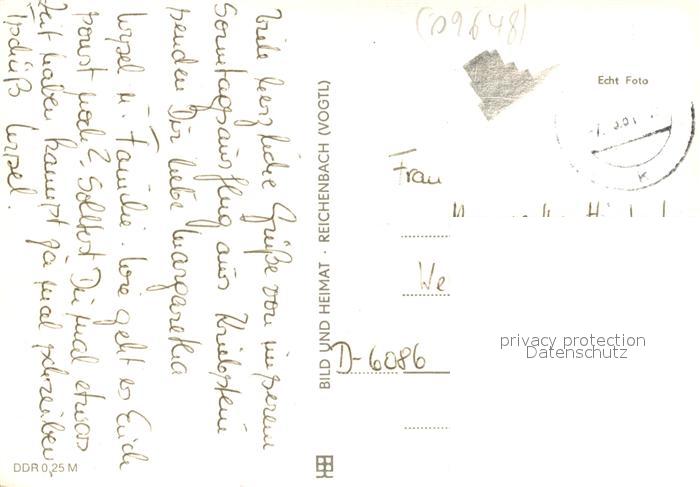 Viele herzliche Grüße von unserem
Sonntagsausflug aus Kriebstein
senden Dir liebe Margaretha
Ursel u. Familie. Wie geht es Euch
sonst noch? Solltest Du mal etwas
Zeit haben kannst ja mal schreiben
Tschüß Ursel.
DDR 0,25 M
BILD UND HEIMAT · REICHENBACH (VOGTL)
(09648)
Echt Foto
Frau
We
D-6086
privacy protection
Datenschutz